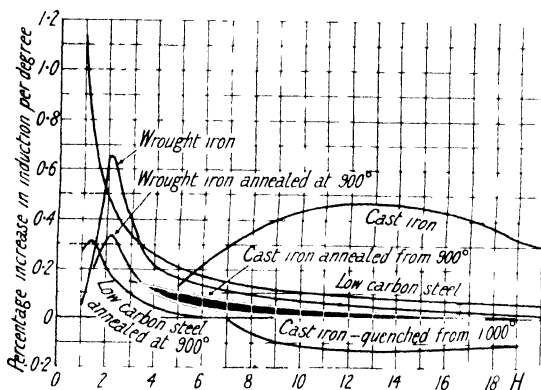 Percentage increase in induction per degree
1·2
1·0
0·8
0·6
0·4
0·2
0
0·2
Wrought iron
Wrought iron annealed at 900°
Cast iron
Cast iron annealed from 900°
Low carbon steel
Low carbon steel
annealed at 900°
Cast iron - quenched from 1000°
0 2 4 6 8 10 12 14 16 18 H